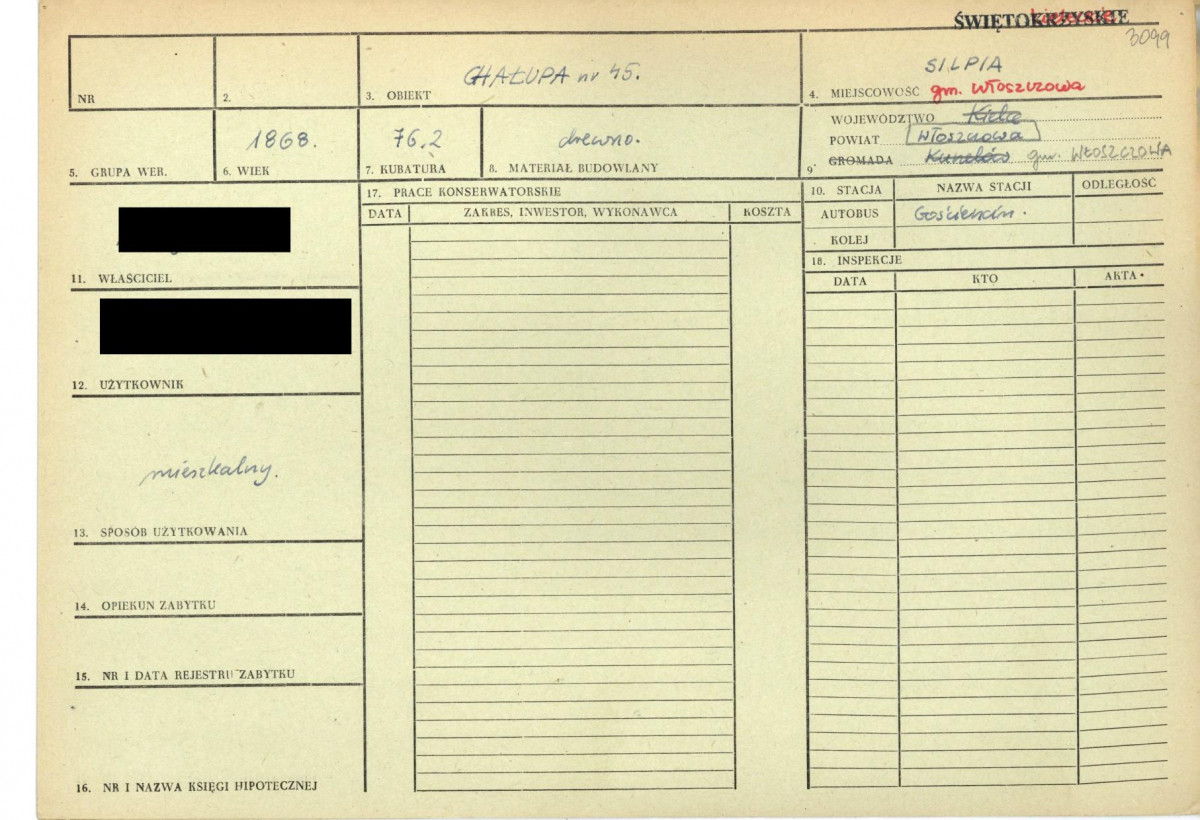 ŚWIĘTOKRZYSKIE
3099
NR
2.
CHAŁUPA nr 45.
3. OBIEKT
SILPIA
4. MIEJSCOWOŚĆ gm. Włoszczowa
5. GRUPA WER.
1868.
6. WIEK
76.2
7. KUBATURA
drewno.
8. MATERIAŁ BUDOWLANY
WOJEWÓDZTWO
POWIAT Włoszczowa
9. GROMADA gm. WŁOSZCZOWA
11. WŁAŚCICIEL
12. UŻYTKOWNIK
mieszkalny.
13. SPOSÓB UŻYTKOWANIA
14. OPIEKUN ZABYTKU
15. NR I DATA REJESTRU ZABYTKU
16. NR I NAZWA KSIĘGI HIPOTECZNEJ
17. PRACE KONSERWATORSKIE
DATA ZAKRES, INWESTOR, WYKONAWCA KOSZTA
10. STACJA NAZWA STACJI ODLEGŁOŚĆ
AUTOBUS
KOLEJ
18. INSPEKCJE
DATA KTO AKTA